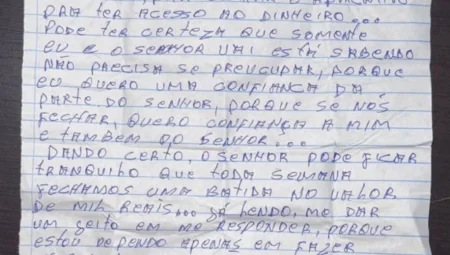 PRA TER ACESSO AO DINHEIRO...
PODE TER CERTEZA QUE SOMENTE
EU E O SENHOR VAI ESTÁ SABENDO
NÃO PRECISA SE PREUCUPAR, PORQUE
EU QUERO UMA CONFIANÇA DA
PARTE DO SENHOR, PORQUE SE NÓS
FECHAR, QUERO CONFIANÇA A MIM
E TAMBEM AO SENHOR...
DANDO CERTO, O SENHOR PODE FICAR
TRANQUILHO QUE TODA SEMANA
FECHAMOS UMA BATIDA NO VALHOR
DE MIL REAIS... LENDO, ME DAR
UM GEITO EM ME RESPONDER, PORQUE
ESTOU DEPENDO APENAS EM FAZER